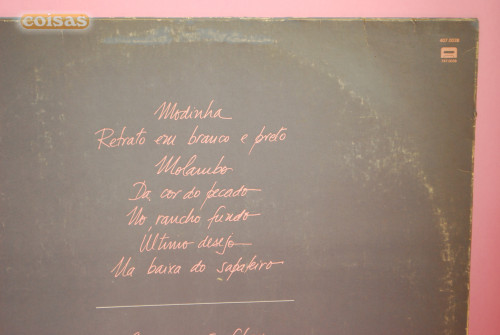 coisas
Modinha
Retrato em branco e preto
Molambo
Da cor do pecado
No rancho fundo
Último desejo
Na baixa do sapateiro